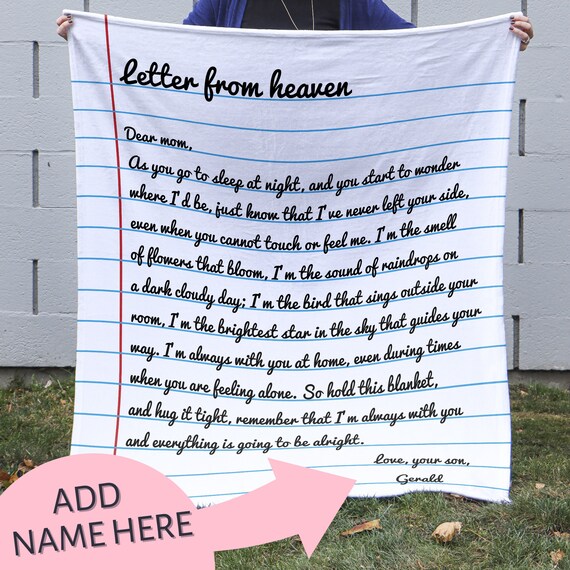 letter from heaven
Dear mom,
As you go to sleep at night, and you start to wonder
where I'd be, just know that I've never left your side,
even when you cannot touch or feel me. I'm the smell
of flowers that bloom, I'm the sound of raindrops on
a dark cloudy day; I'm the bird that sings outside your
room, I'm the brightest star in the sky that guides your
way. I'm always with you at home, even during times
when you are feeling alone. So hold this blanket,
and hug it tight, remember that I'm always with you
and everything is going to be alright.
Love, your son,
Gerald
ADD
NAME HERE